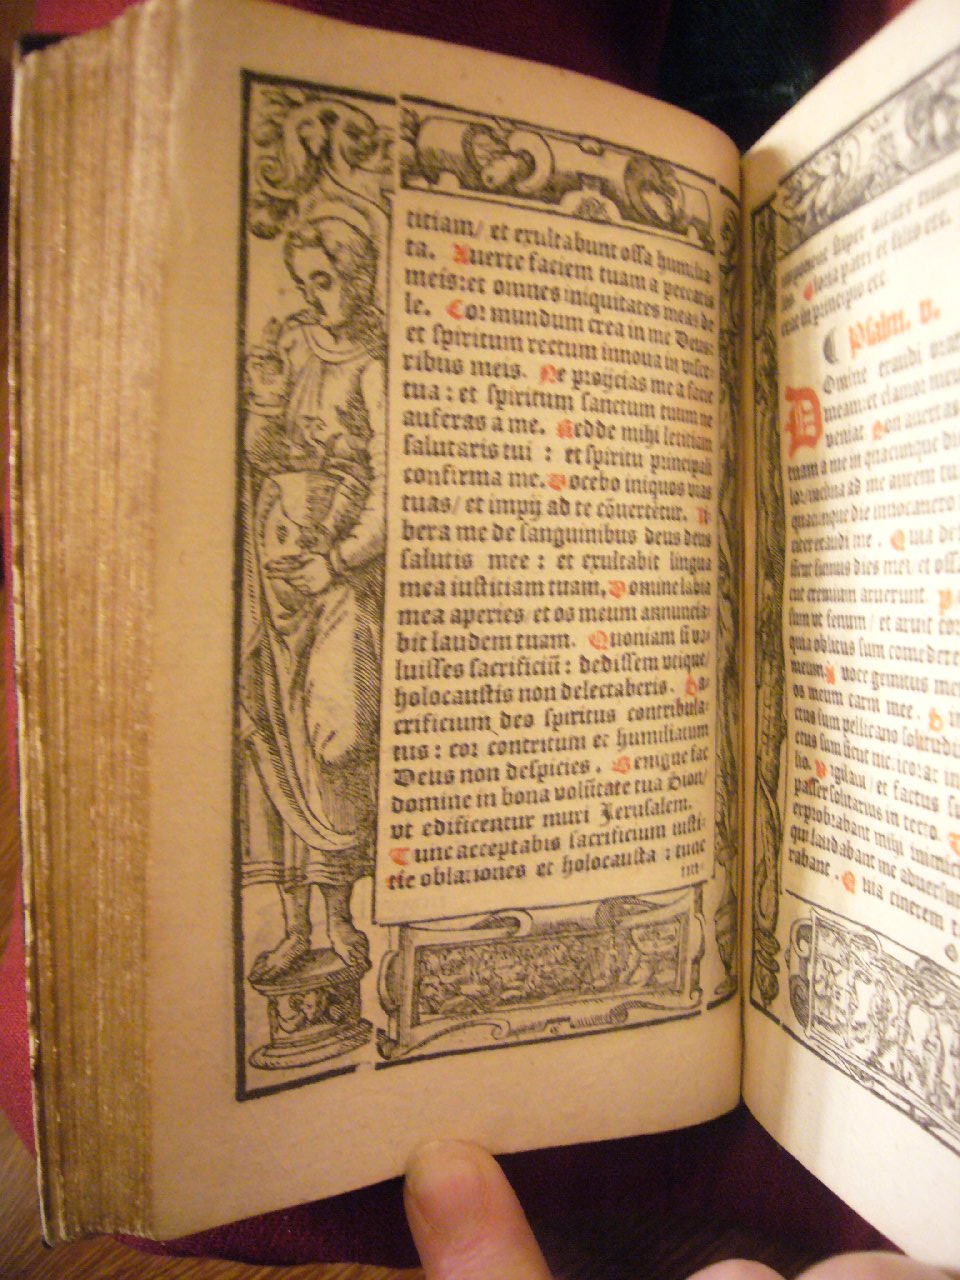 titiam/ et exultabunt ossa humilia
ta. Auerte faciem tuam a peccatis
meis: et omnes iniquitates meas de
le. Cor mundum crea in me Deus:
et spiritum rectum innoua in visce
ribus meis. Ne proijcias me a facie
tua : et spiritum sanctum tuum ne
auferas a me. Redde mihi letitiam
salutaris tui : et spiritu principali
confirma me. Docebo iniquos vias
tuas/ et impij ad te cōuertētur. Li
bera me de sanguinibus deus deus
salutis mee : et exultabit lingua
mea iustitiam tuam. Domine labia
mea aperies : et os meum annuncia
bit laudem tuam. Quoniam si vo
luisses sacrificiū : dedissem vtique/
holocaustis non delectaberis. Sa
crificium deo spiritus contribula
tus : cor contritum et humiliatum
Deus non despicies. Benigne fac
domine in bona volūtate tua Sion/
vt edificentur muri Jerusalem.
Tunc acceptabis sacrificium iusti
tie oblationes et holocausta : tunc
im
imponent super altare tuum
los. Gloria patri et filio etc.
erat in principio etc
Psalm. v.
Domine exaudi orat
meam: et clamor meus
veniat. Non auertas
tuam a me in quacunque di
lor/ inclina ad me aurem tu
quacunque die inuocauero
citer exaudi me . Quia de
serunt sicut fumus dies mei/ et oss
cut cremium aruerunt. Pe
sum vt fenum/ et aruit cor
quia oblitus sum comedere
meum. A voce gemitus mei
os meum carni mee . Si
ctus sum pellicano solitudi
ctus sum sicut nicticorax in
lio. Vigilaui/ et factus su
passer solitarius in tecto.
exprobrabant mihi inimici
qui laudabant me aduersum
rabant. Quia cinerem t